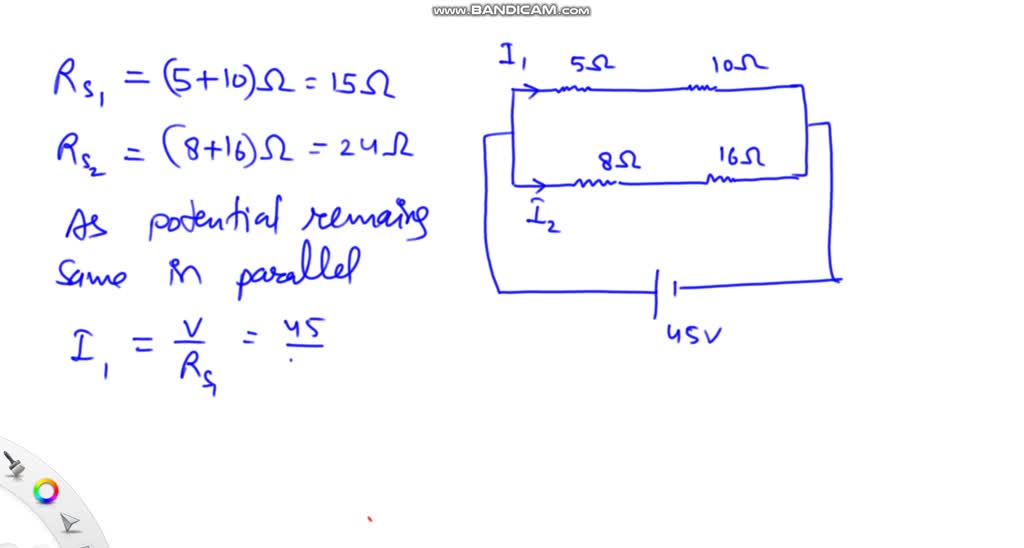 WWW.BANDICAM.COM
R_S₁ = (5+10)Ω = 15Ω
R_S₂ = (8+16)Ω = 24Ω
As potential remaing
same in parallel
I₁ = V/R_S₁ = 45
I₁ 5Ω 10Ω
8Ω 16Ω
I₂
45V